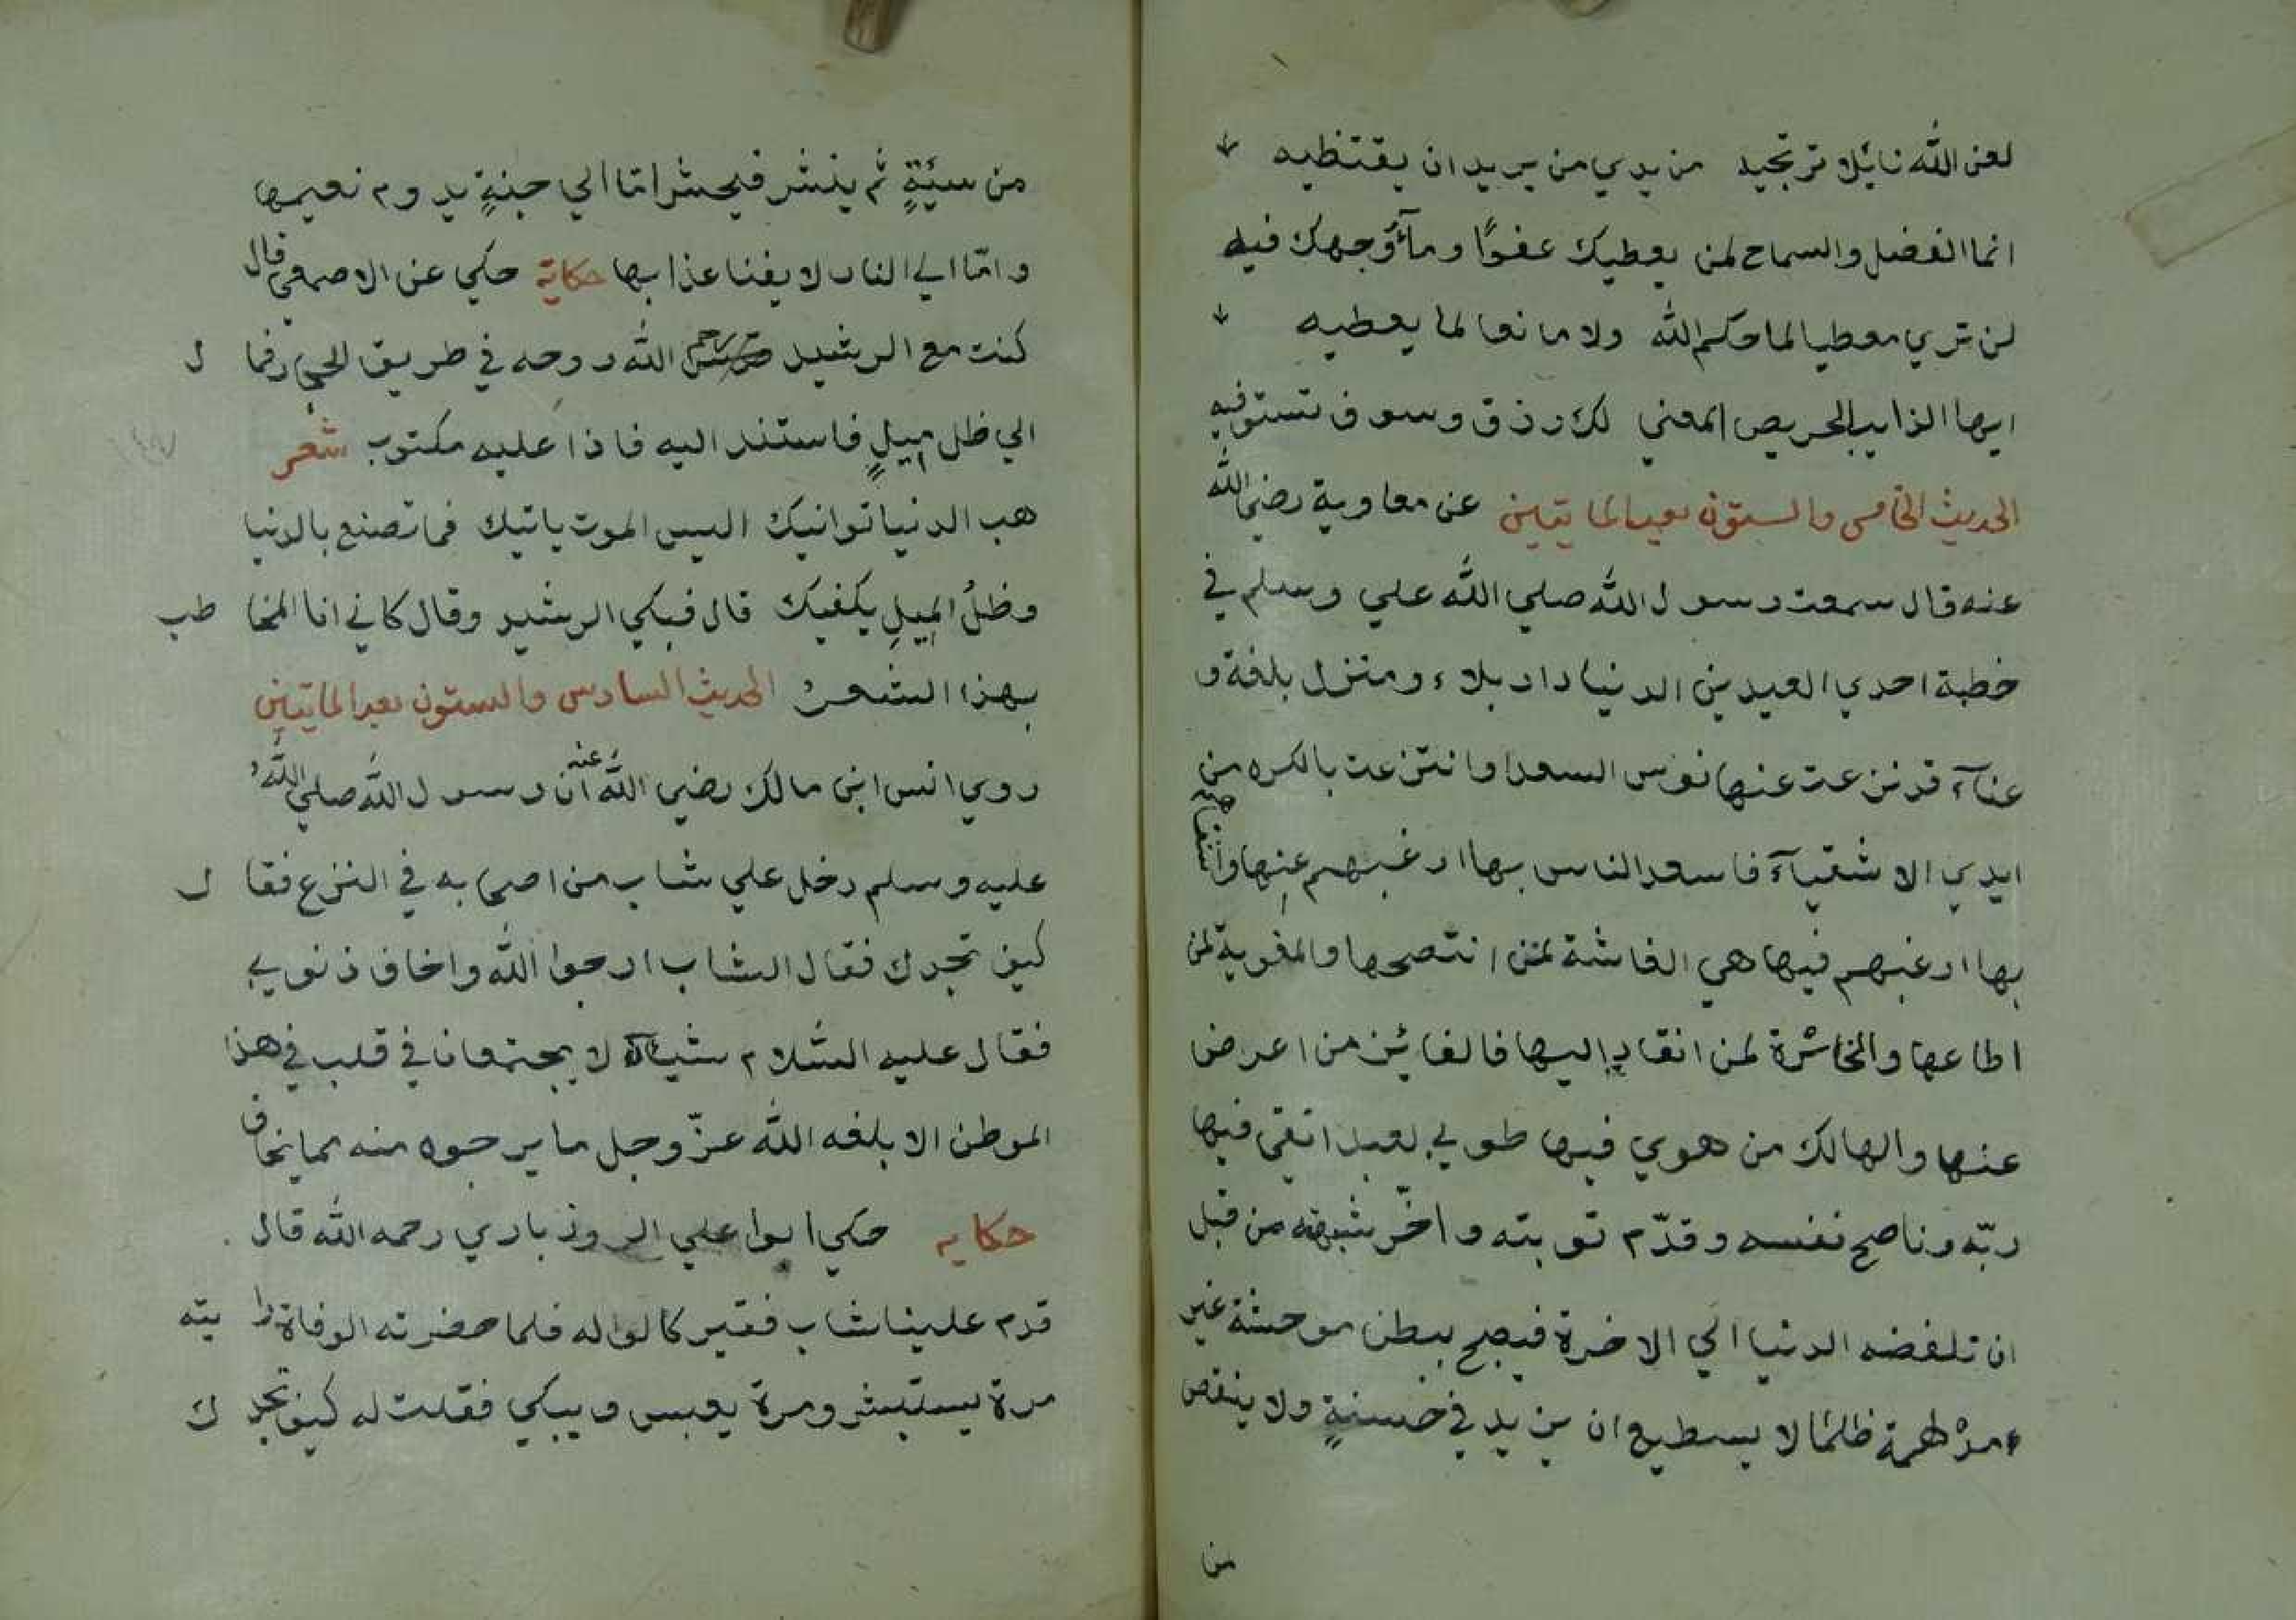 لعن الله نايلا ترتجيه من يدي من يريد ان يقتظيه
انما الفضل والسماح لمن يعطيك عفوًا ومآؤ وجهك فيه
لن تري معطيا لما حكم الله ولا مانعا لما يعطيه
ايها الذايب الحريص المعني لك رزق وسوف تستوفيه
الحديث الخامس والستون بعد المايتين عن معاوية رضي الله
عنه قال سمعت رسول الله صلي الله علي وسلم في
خطبة احدي العيدين الدنيا دار بلاء ومنزل بلغة و
عنآء قد نزعت عنها نوس السعدا وانتزعت بالكره من
ايدي الاشقيآء فاسعد الناس بها ارغبهم عنها واشقاهم
بها ارغبهم فيها هي الغاشة لمن انتصحها والمغوية لمن
اطاعها والخاشرة لمن انقاد إليها فالفائز من اعرض
عنها والهالك من هوي فيها طوبي لعبد اتقي فيها
ربّه وناصح نفسه وقدّم توبته واخّر شهوته من قبل
ان تلفضه الدنيا الي الاخرة فيصبح ببطن موحشة غير
مدلهمة ظلمًا لا يسطيع ان يزيد في حسنةٍ ولا ينقص
من
من سيّئةٍ ثم ينشر فيحشر امّا الي جنةٍ يدوم نعيمها
وامّا الي النار لا يفنا عذابها حكاية حكي عن الاصمعي قال
كنت مع الرشيد الله روحه في طريق الحج فما ل
الي ظل ميلٍ فاستند اليه فاذا عليه مكتوب شعر
هب الدنيا تواتيك اليس الموت ياتيك فما تصنع بالدنيا
وظلُ الميلِ يكفيك قال فبكي الرشيد وقال كاني انا المخا طب
بهذا الشعر الحديث السادس والستون بعد المايتين
روي انس ابن مالك رضي الله عنه ان رسول الله صلي اللهُ
عليه وسلم دخل علي شاب من اصحابه في النزع فقا ل
كيف تجدك فقال الشاب ارجوا الله واخاف ذنوبي
فقال عليه السّلام شيأن لا يجتمعان في قلب في هذا
الموطن الا بلغه الله عزّ وجل ما يرجوه منه مما يخاف
حكايه حكي ابوا علي الروذباري رحمه الله قال
قدم علينا شاب فقير كالواله فلما حضرته الوفاة را يته
مرة يستبشر ومرة يعبس ويبكي فقلت له كيف تجد ك